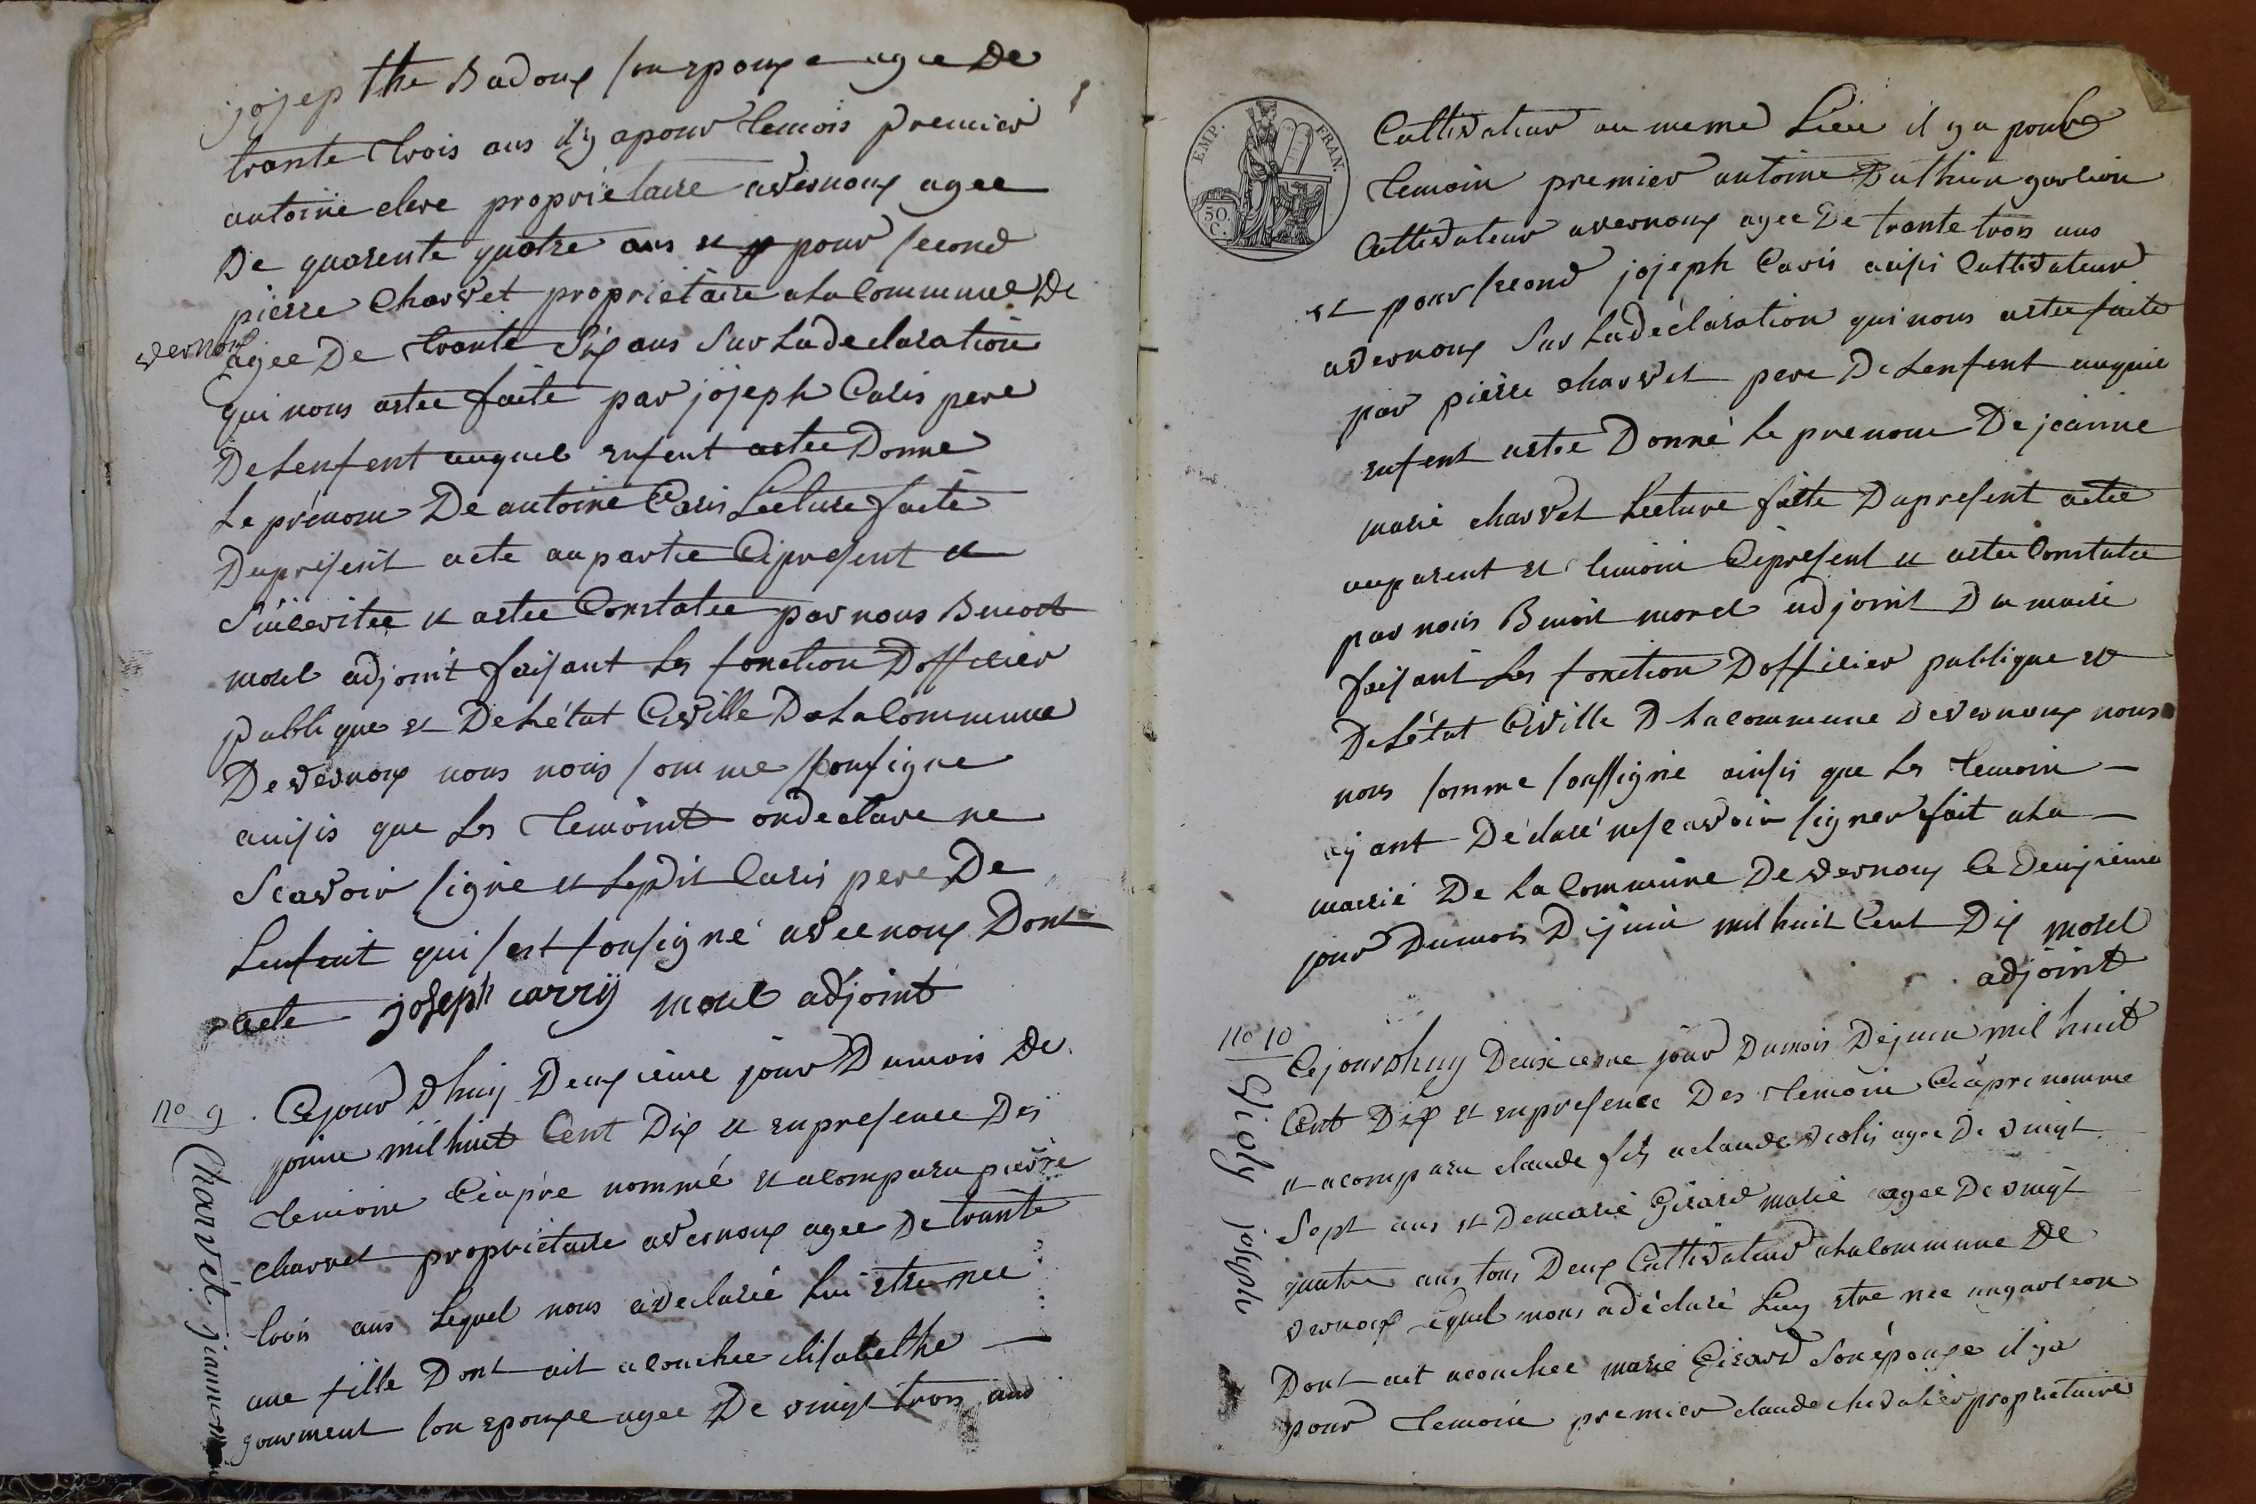 jojepthe Badoux son epouxe agee De
trante trois ans il y a pour temois premier
antoine clere proprietaire avernoux agee
De quarente quatre ans et pour second
pierre Charvet proprietaire ala Commune De
vernoux
agee De trante Six ans Sur La declaration
qui nous astee faite par jojeph Caris pere
De Lenfent auquel enfent astee Donne
Le prénom De antoine Caris Lecture faite
Du present acte au partie Cipresent et
Suilevitee et astee Constatee par nous Benoit
morel adjoint faisant Les fonction Dofficier
publique et De Létat Civille De La Commune
De vernoux nous nous somme sousigne
ainsis que Les temoint on declare ne
Scavoir signe et Ledit Caris pere De
Lenfent qui sest sousigné avec nous Dont
acte joseph carrÿ morel adjoint
no 9
Charvét jeanne
Cejour Dhuy Deuxieme jour Dumois De
juin mil huit Cent Dix et en presence Des
temoin Ciapre nommé et a comparu pierre
charvet proprietaire avernoux agee De trante
trois ans Lequel nous a declaré Lui etre nee
une fille Dont ait acouchee elisabethe
gourment son epouxe agee De vingt trois ans
EMP. FRAN.
50. C.
Cultivateur au meme Lieu il y a pour
temoin premier antoine Duthion garcion
Cultivateur avernoux agee De trante trois ans
et pour second jojeph Caris ausis Cultivateur
avernoux Sur La déclaration qui nous astee faite
par pierre charvet pere De Lenfent auquel
enfent astee Donné Le prenom De jeanne
marie charvet Lecture faite Du present actee
au parent et temoin Cipresent et astee Constatee
par nous Benoit morel adjoint Du maire
faisant Les fonction Dofficier publique et
De Létat Civille D La commune De vernoux nous
nous somme soussigné ainsis que Les temoin
ayant Déclaré ne scavoir signer fait ala
mairie De La Commune De vernoux Le Deuxieme
jour Dumois Dejuin mil huit Cent Dix morel
adjoint
no 10
Violy joseph
Cejourdhuy Deuxieme jour Dumois Dejuin mil huit
Cent Dix et en presence Des temoin Ciapre nomme
et a comparu claude fils a claude violis agee De vingt
Sept ans et De marie Girard marie agee De vingt
quatre ans tous Deux Cultivateur ala Commune De
vernoux Lequel nous a déclaré Luy etre nee un garcion
Dont ait acouchee marie Girard Son épouxe il ya
pour temoin premier claude chevalier proprietaire